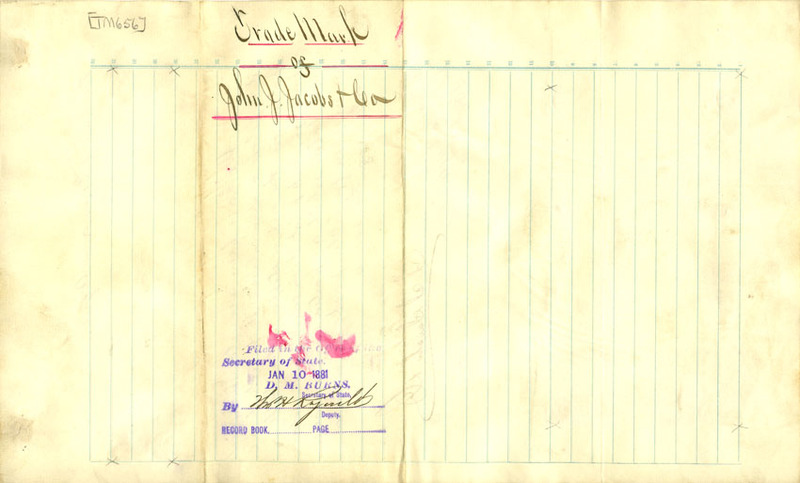 [TM656]
Trade Mark
of
John. J. Jacobs & Co
Filed in the Office
Secretary of State.
JAN 10 1881
D. M. BURNS.
Secretary of State,
By
Deputy.
RECORD BOOK. PAGE